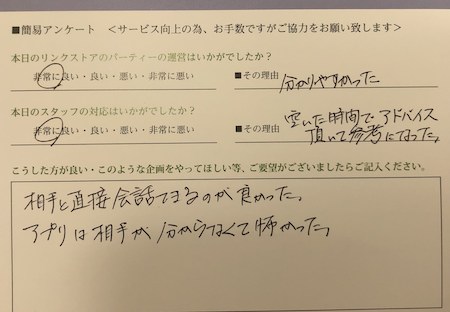 ■簡易アンケート　＜サービス向上の為、お手数ですがご協力をお願い致します＞
本日のリンクストアのパーティーの運営はいかがでしたか？
非常に良い・良い・悪い・非常に悪い　■その理由　分かりやすかった
本日のスタッフの対応はいかがでしたか？
非常に良い・良い・悪い・非常に悪い　■その理由　空いた時間で、アドバイス
頂いて参考になった。
こうした方が良い・このような企画をやってほしい等、ご要望がございましたらご記入ください。
相手と直接会話できるのが良かった。
アプリは相手が分からなくて怖かった。